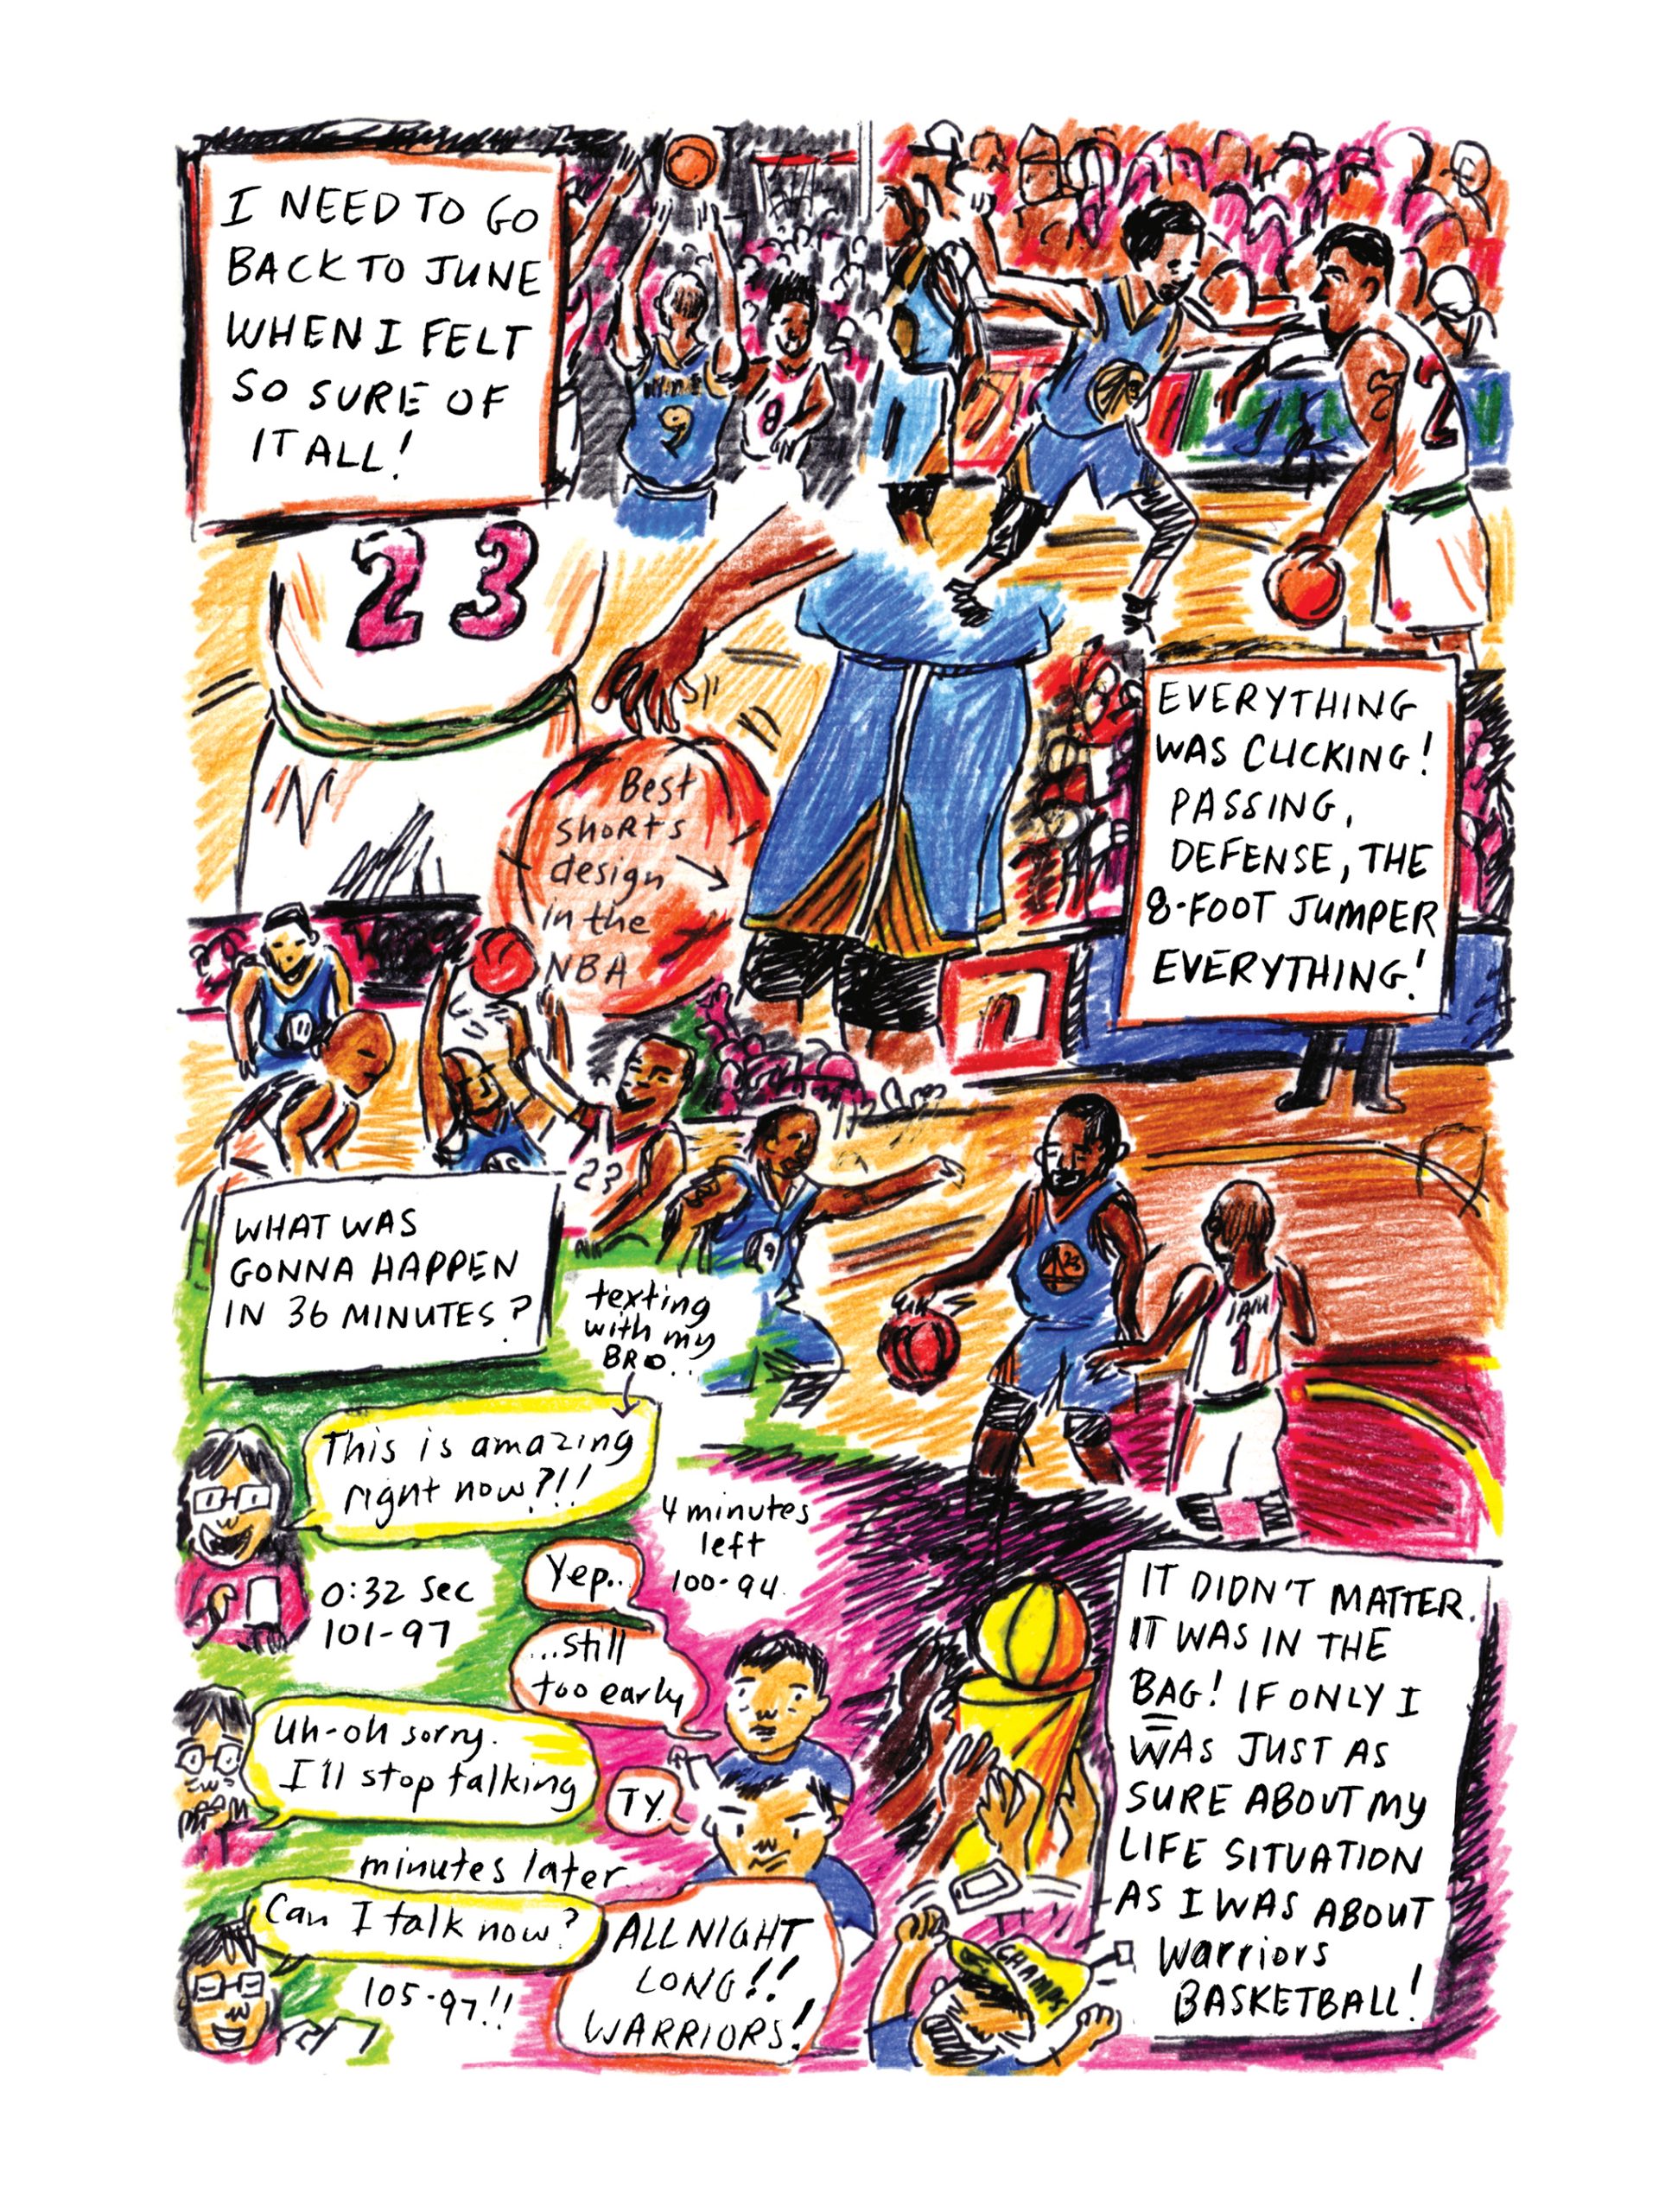 I NEED TO GO
BACK TO JUNE
WHEN I FELT
SO SURE OF
IT ALL!
9
8
2
23
EVERYTHING
WAS CLICKING!
PASSING,
DEFENSE, THE
8-FOOT JUMPER
EVERYTHING!
Best
shorts
design
in the
NBA
11
23
9
WHAT WAS
GONNA HAPPEN
IN 36 MINUTES?
texting
with my
BRO...
1
This is amazing
right now?!!!
4 minutes
left
100-94
Yep..
0:32 sec
101-97
...still
too early
Uh-oh sorry.
I'll stop talking
TY.
minutes later..
Can I talk now?
105-97!!
ALL NIGHT
LONG!!
WARRIORS!
CHAMPS
IT DIDN'T MATTER.
IT WAS IN THE
BAG! IF ONLY I
WAS JUST AS
SURE ABOUT MY
LIFE SITUATION
AS I WAS ABOUT
Warriors
BASKETBALL!